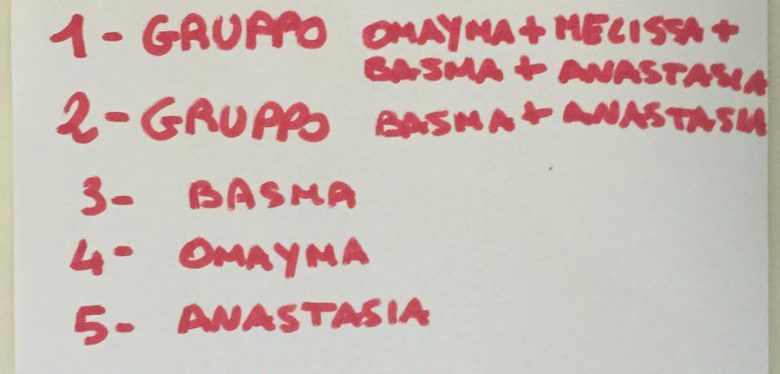 1- GRUPPO OMAYMA + MELISSA +
BASMA + ANASTASIA
2- GRUPPO BASMA + ANASTASIA
3- BASMA
4- OMAYMA
5- ANASTASIA